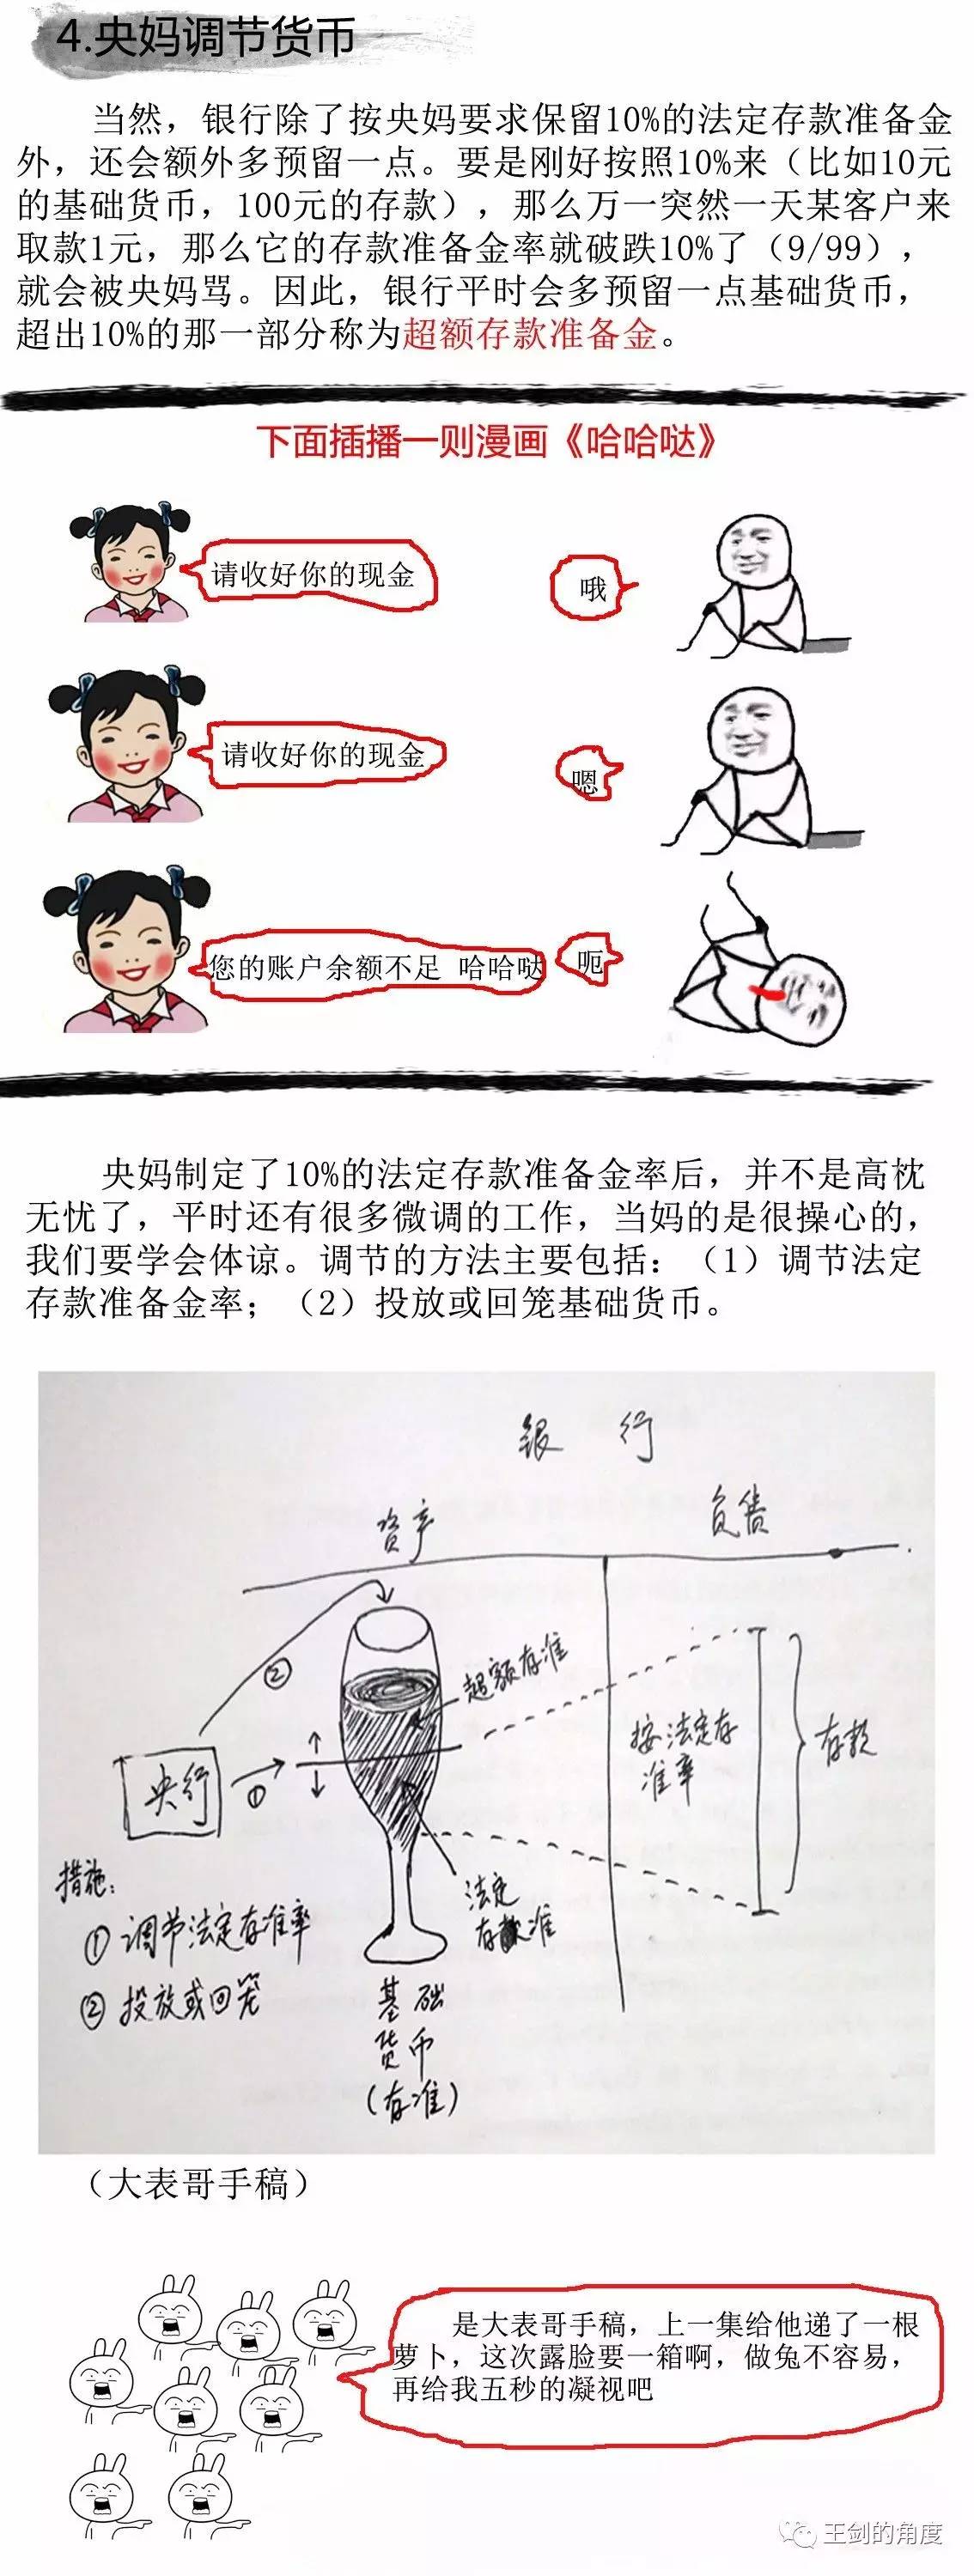 4.央妈调节货币
当然，银行除了按央妈要求保留10%的法定存款准备金
外，还会额外多预留一点。要是刚好按照10%来（比如10元
的基础货币，100元的存款），那么万一突然一天某客户来
取款1元，那么它的存款准备金率就破跌10%了（9/99），
就会被央妈骂。因此，银行平时会多预留一点基础货币，
超出10%的那一部分称为超额存款准备金。
下面插播一则漫画《哈哈哒》
请收好你的现金
哦
请收好你的现金
嗯
您的账户余额不足 哈哈哒
呃
央妈制定了10%的法定存款准备金率后，并不是高枕
无忧了，平时还有很多微调的工作，当妈的是很操心的，
我们要学会体谅。调节的方法主要包括：（1）调节法定
存款准备金率；（2）投放或回笼基础货币。
银 行
资产
负债
②
超额存准
按法定存
准率
存款
央行
①
措施：
①调节法定存准率
②投放或回笼
法定
存准
基础
货币
（存准）
（大表哥手稿）
是大表哥手稿，上一集给他递了一根
萝卜，这次露脸要一箱啊，做兔不容易，
再给我五秒的凝视吧
王剑的角度